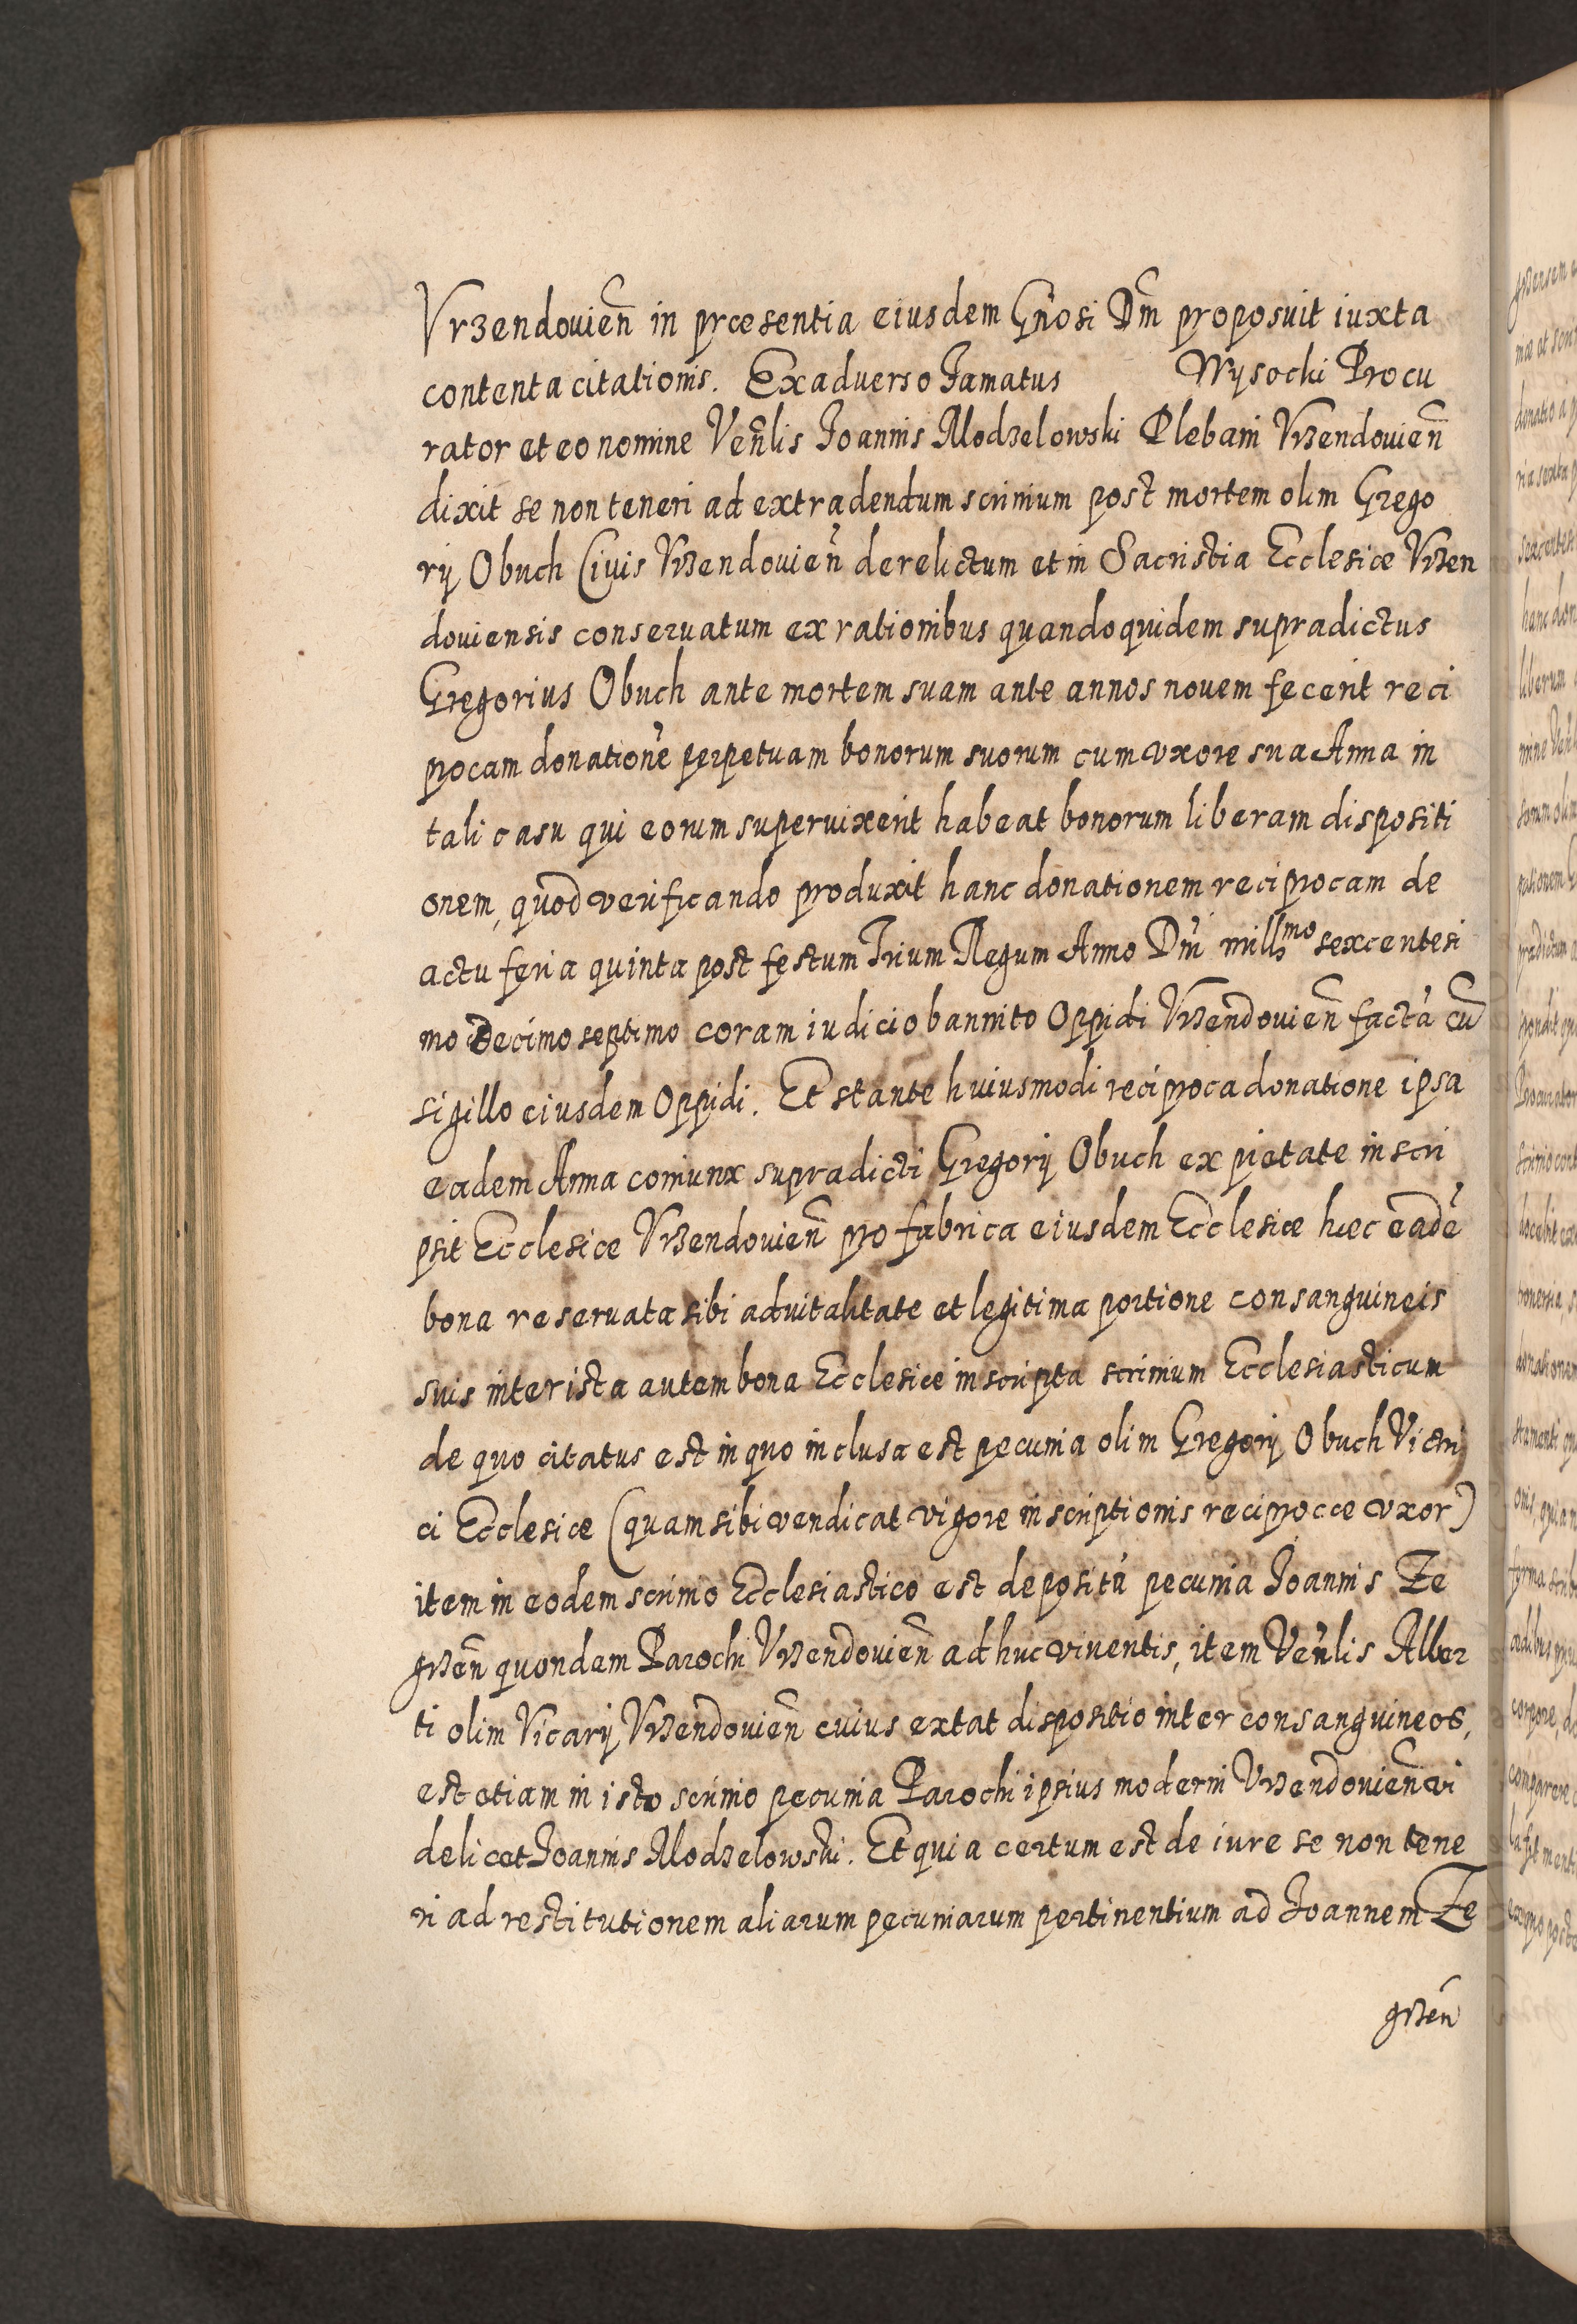 Vrzendouien̄ in præsentia eiusdem Gn̄osi Dn̄m proposuit iuxta
contenta citationis. Ex aduerso Famatus Wysocki Procu
rator et eo nomine Ven̄lis Joannis Modzelowski Plebani Vrzendouien̄
dixit se non teneri ad extradendum scrinium post mortem olim Grego
rij Obuch Ciuis Vrzendouien̄ derelictum et in Sacristia Ecclesiæ Vrzen
douiensis conseruatum ex rationibus quandoquidem supradictus
Gregorius Obuch ante mortem suam ante annos nouem fecerit reci
procam donationē perpetuam bonorum suorum cum vxore sua Anna in
tali casu qui eorum superuixerit habeat bonorum liberam dispositi
onem, quod verificando produxit hanc donationem reciprocam de
actu feria quinta post festum Trium Regum Anno Dn̄i mill̄mo sexcentesi
mo Decimo septimo coram iudicio bannito Oppidi Vrzendouien̄ factā cū
sigillo eiusdem Oppidi. Et stante huiusmodi reciproca donatione ipsa
eadem Anna coniunx supradicti Gregorij Obuch ex pietate inscri
psit Ecclesiæ Vrzendouien̄ pro fabrica eiusdem Ecclesiæ hæc eadē
bona reseruata sibi aduitalitate et legitima portione consanguineis
suis inter ista autem bona Ecclesiæ inscripta scrinium Ecclesiasticum
de quo citatus est in quo inclusa est pecunia olim Gregorij Obuch Vitri
ci Ecclesiæ (quam sibi vendicat vigore inscriptionis reciprocæ vxor)
item in eodem scrinio Ecclesiastico est depositū pecunia Joannis Ze
grzen̄ quondam Parochi Vrzendouien̄ ad huc viuentis, item Ven̄lis Alber
ti olim Vicarij Vrzendouien̄ cuius extat dispositio inter consanguineos,
est etiam in isto scrinio pecunia Parochi ipsius moderni Vrzendouien̄ vi
delicet Joannis Modzelowski. Et quia certum est de iure se non tene
ri ad restitutionem aliarum pecuniarum pertinentium ad Joannem Ze
grzen̄